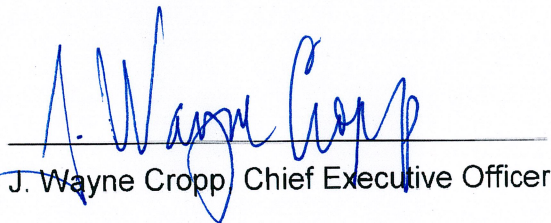 J. Wayne Cropp
J. Wayne Cropp, Chief Executive Officer